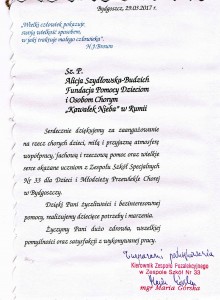 Bydgoszcz, 29.03.2017 r.
„Wielki człowiek pokazuje
swoją wielkość sposobem,
w jaki traktuje małego człowieka".
H.J.Brown
Sz. P.
Alicja Szydłowska-Budzich
Fundacja Pomocy Dzieciom
i Osobom Chorym
„Kawałek Nieba" w Rumii
Serdecznie dziękujemy za zaangażowanie
na rzecz chorych dzieci, miłą i przyjazną atmosferę
współpracy, fachową i rzeczową pomoc oraz wielkie
serce okazane uczniom z Zespołu Szkół Specjalnych
Nr 33 dla Dzieci i Młodzieży Przewlekle Chorej
w Bydgoszczy.
Dzięki Pani życzliwości i bezinteresownej
pomocy, realizujemy dziecięce potrzeby i marzenia.
Życzymy Pani dużo zdrowia, wszelkiej
pomyślności oraz satysfakcji z wykonywanej pracy.
Z wyrazami podziękowania
Kierownik Zespołu Pozalekcyjnego
w Zespole Szkół Nr 33
mgr Maria Górska